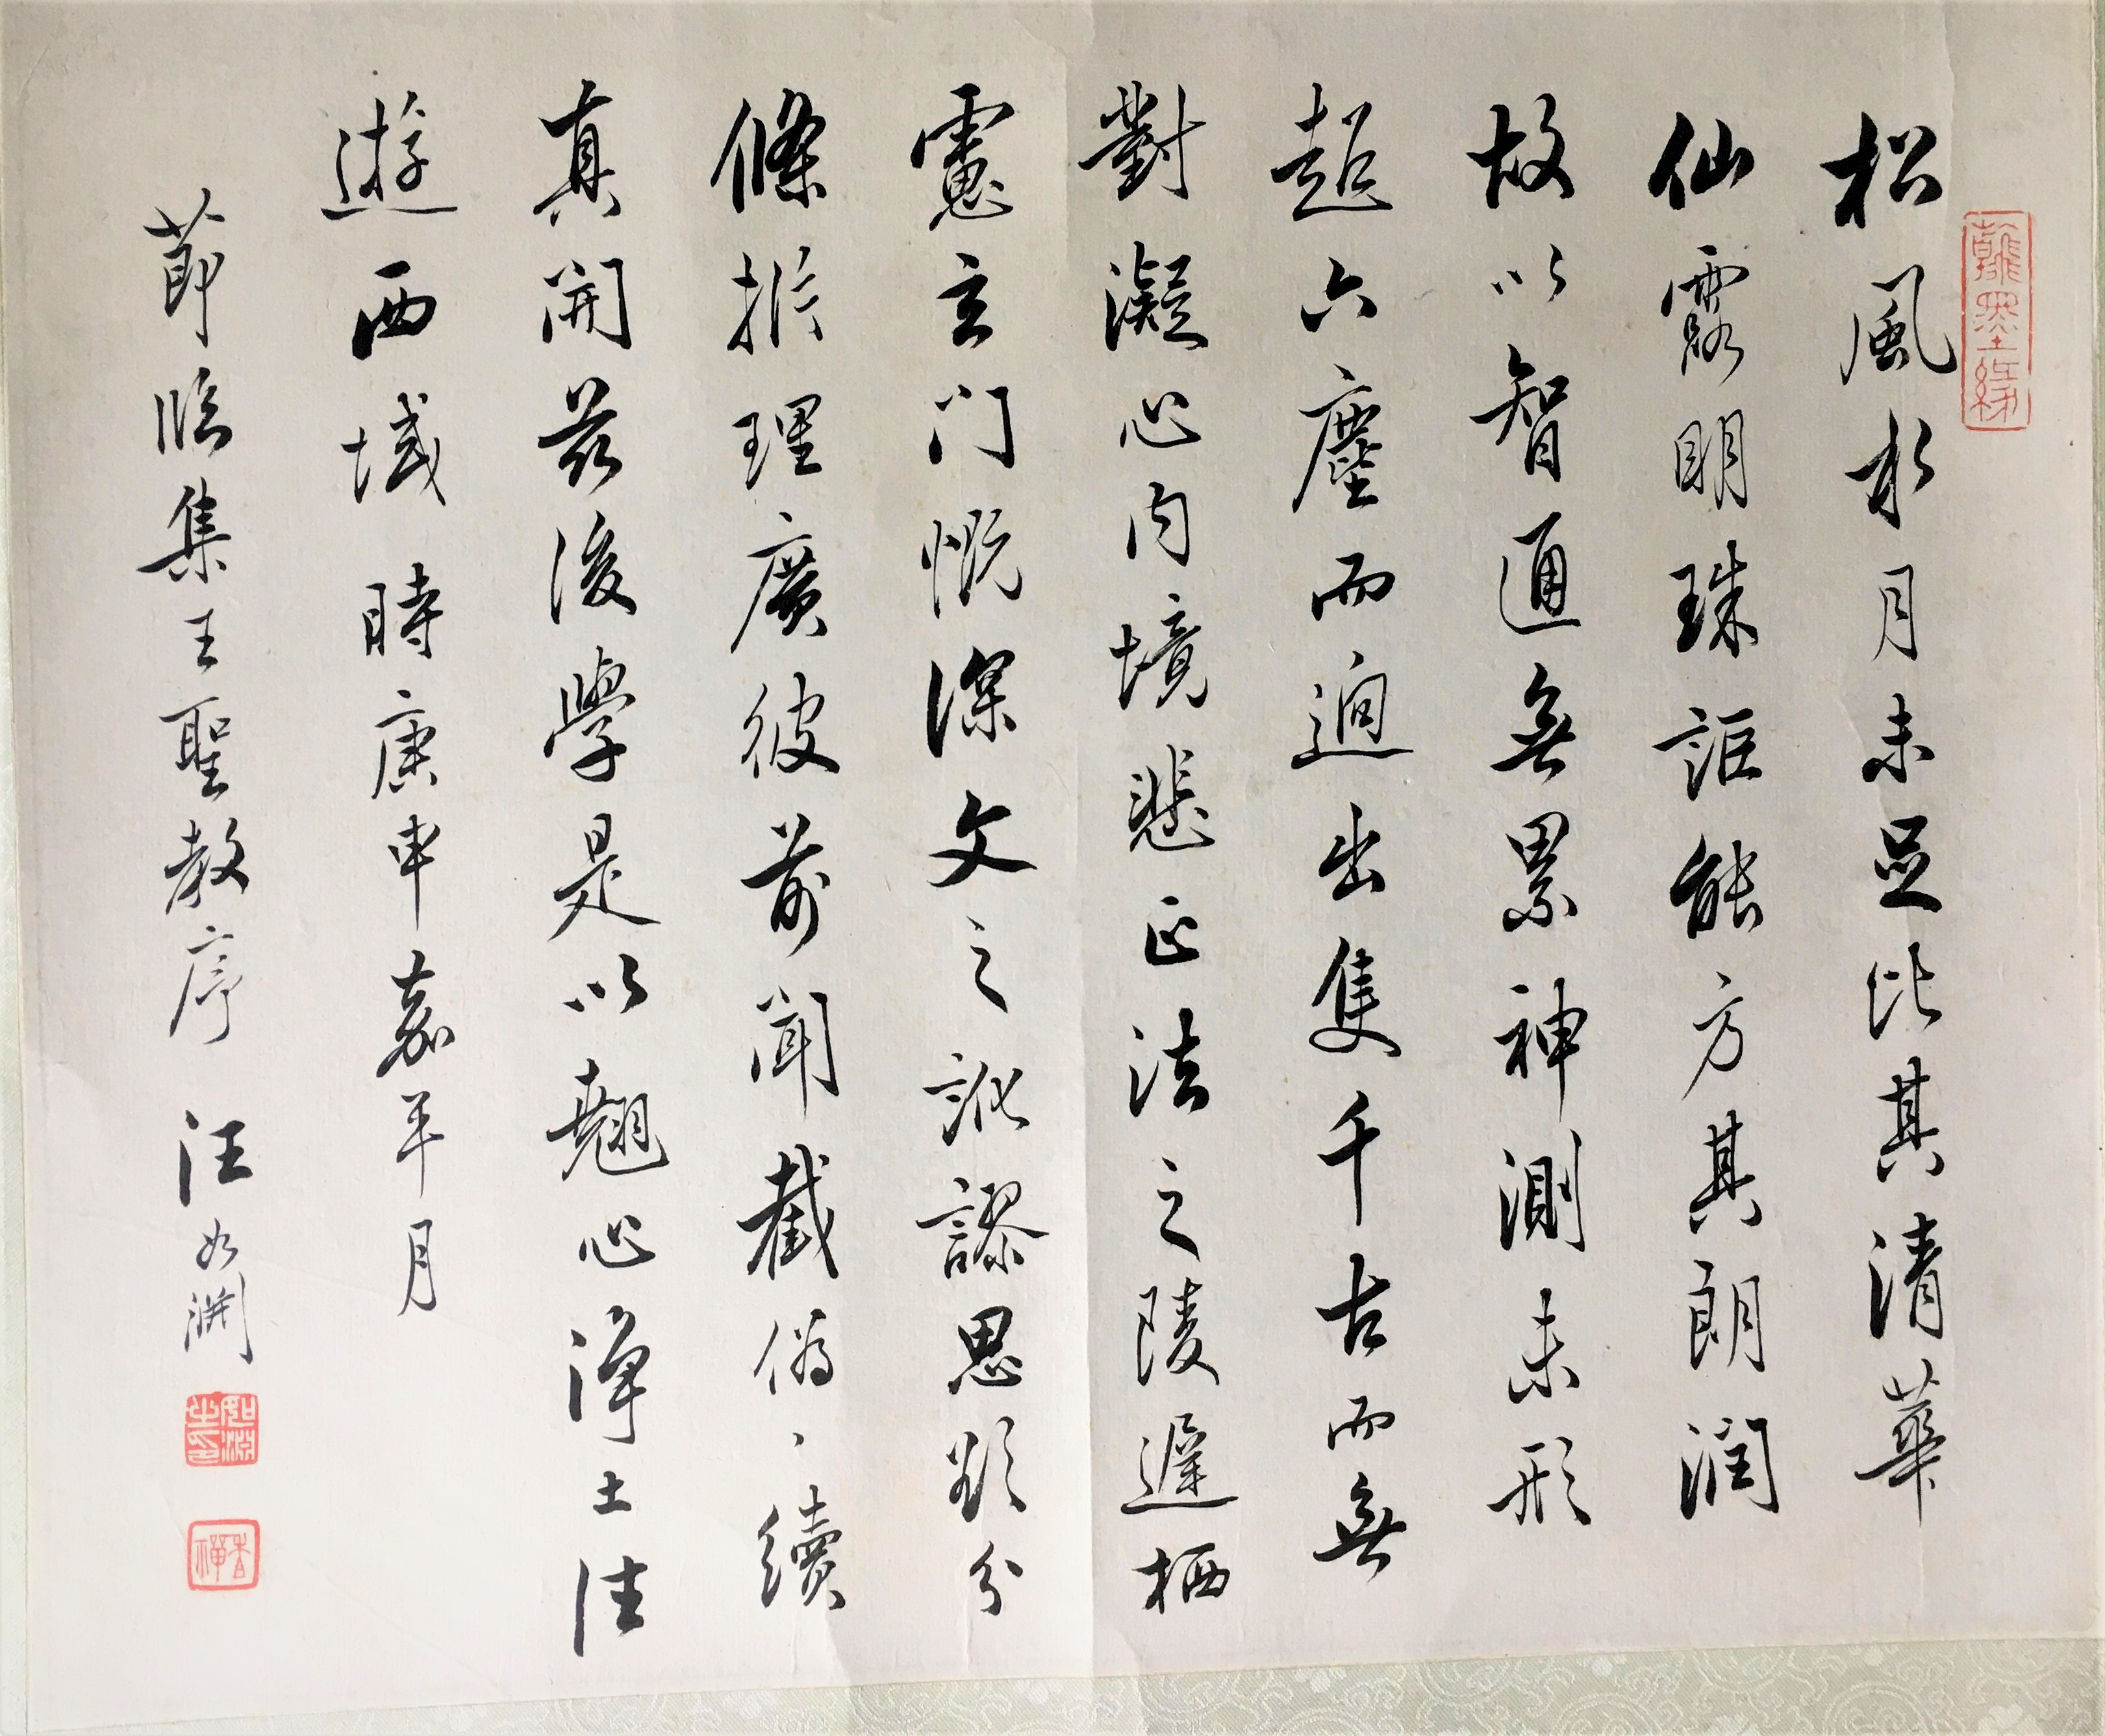 翰墨緣
松風水月未足比其清華
仙露明珠詎能方其朗潤
故以智通無累神測未形
超六塵而迥出隻千古而無
對凝心內境悲正法之陵遲栖
慮玄門慨深文之訛謬思欲分
條析理廣彼前聞截偽、續
真開茲後學是以翹心淨土往
遊西域 時庚申嘉平月
節臨集王聖教序 汪如淵
如淵之印
香禪